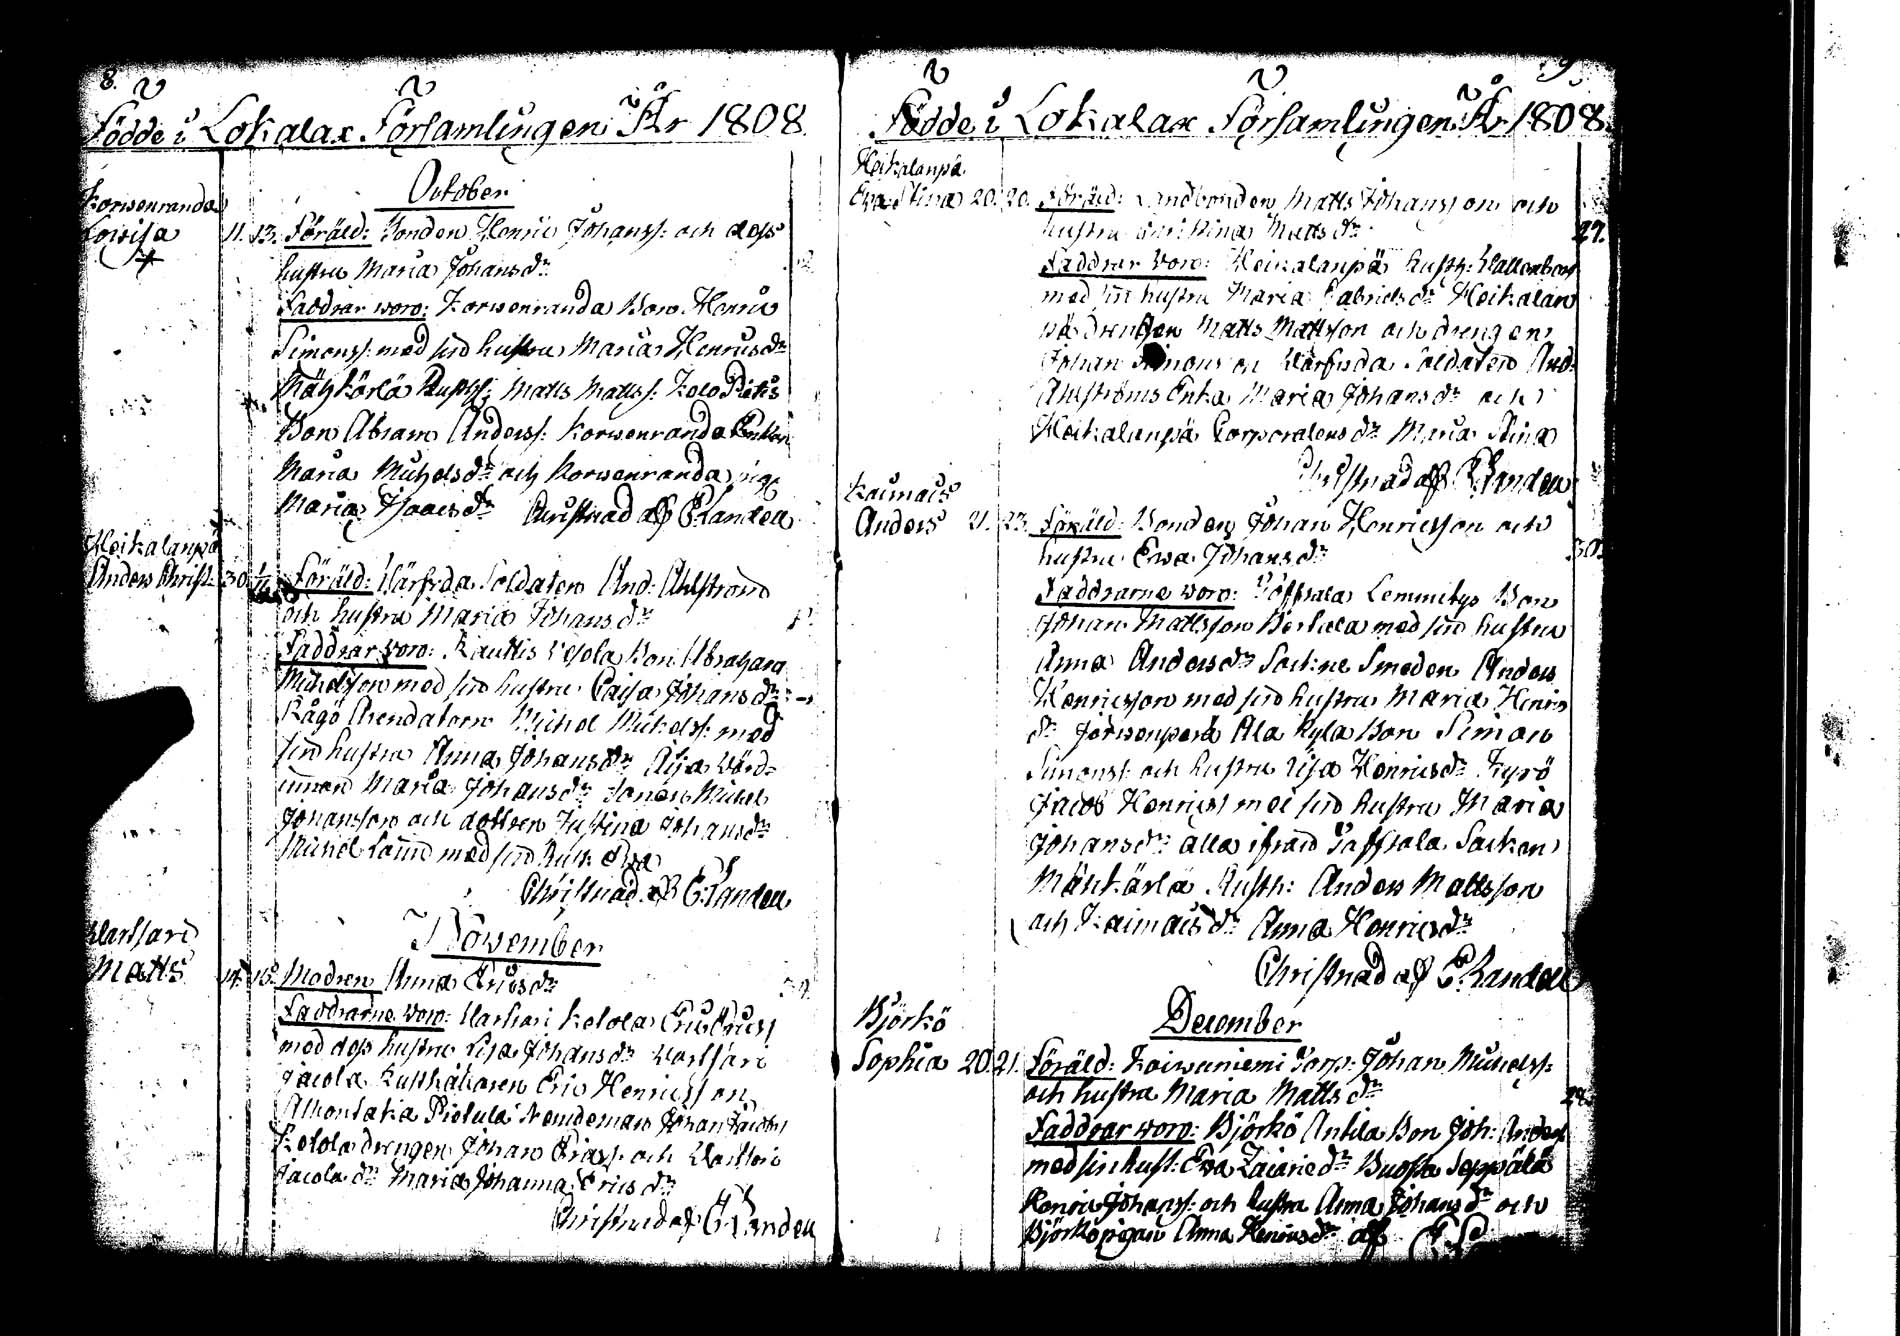 8.
Födde i Lokalax Församlingen År 1808.
October
Korwenranda
Lovisa 11. 13. Föräld: Bonden Henric Johanss: och dess
hustru Maria Johansdr
Faddrar woro: Korwenranda Bon Henric
Simonss: med sin hustru Maria Henricsdr
Mäykärlä Rusth: Matts Mattss:
Bon Abram Anderss: Korwenranda Enkan
Maria Michelsdr och Korwenranda pig:
Maria Isaacsdr Christnad aff E Landell
Heikalanpä
Anders Christ: 30. 1/11 Föräld: Wärfvda Soldaten And: Ahlström
och hustru Maria Johansdr
Faddrar woro: Rauttis Bon Abraham
Michelsson med sin hustru Caisa Johansdr
Kågö Arendatorn Michel Michelss: med
sin hustru Anna Johansdr Wärd-
innan Maria Johansdr Sonen Michel
Johansson och dottren Justina Johansdr
Michel med sin hust: Eva
Christnad aff E Landell
November
Wartsari
Matts 14. 15. Modren Anna Ericsdr
Faddrarne woro: Wartsari Ketola Eric Ericss
med dess hustru Lisa Johansdr Wartsari
Jacola Rusthållaren Eric Henricsson
Pietula Nemdeman Johan Jacobss
Ketola drengen Johan Ericss: och Wartsari
Jacola dr Maria Johanna Ericsdr
Christnad af E Landell
9
Födde i Lokalax Församlingen År 1808.
Heikalanpä
Eva Stina 20. 20. Föräld: Landbonden Matts Johansson och
hustru Mattsdr 27.
Faddrar woro: Heikalanpä Rusth: Wallenberg
med sin hustru Maria Gabrielsdr Heikalan
pä drengen Matts Mattsson och drengen
Johan Simonsson Wärfvda Soldaten And:
Ahlströms Enka Maria Johansdr och
Heikalanpä Corporalens dr Maria Stina
Christnad aff E Landell
Kaimais
Anders 21. 23. Föräld: Bonden Johan Henricsson och
hustru Ewa Johansdr 30.
Faddrarne woro: Töffsala Lemmetys Bon
Johan Mattsson med sin hustru
Anna Andersdr Sockne Smeden Anders
Henricsson med sin hustru Maria Henrics
dr Järwenperä Ala Kyla Bon Simon
Simonss: och hustru Lisa Henricsdr Kyrö
Jacob Henricss med sin hustru Maria
Johansdr alla ifrån Töffsala Socken
Mäykärlä Rusth: Anders Mattsson
och Kaimais dr Anna Henricsdr
Christnad aff E Landell
December
Björkö
Sophia 20. 21. Föräld: Koiwuniemi Torp: Johan Michelss:
och hustru Maria Mattsdr 28.
Faddrar woro: Björkö Antila Bon Joh: Anderss
med sin hust: Eva Zacariedr Seppälä
Henric Johanss: och hustru Anna Johansdr och
Björkö pigan Anna Henricsdr aff